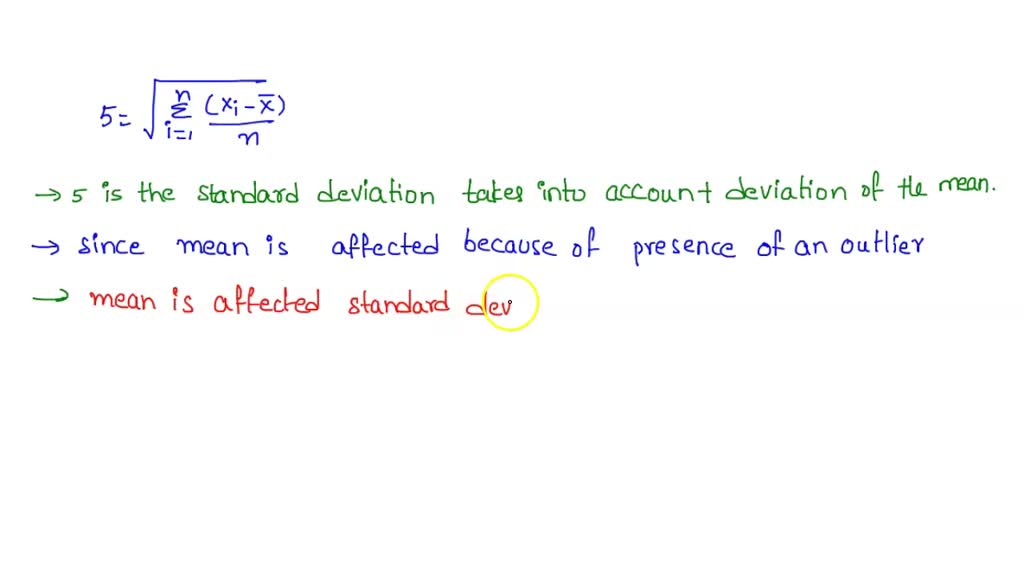 5 = √ Σ_{i=1}^{n} (xi - x̄) / n
→ 5 is the standard deviation takes into account deviation of the mean.
→ since mean is affected because of presence of an outlier
→ mean is affected standard dev